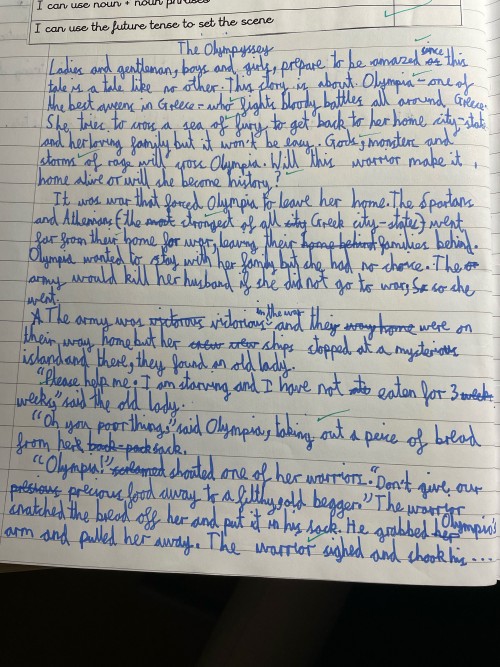 I can use noun + noun phrases
I can use the future tense to set the scene
The Olympyssey
Ladies and gentleman, boys and girls, prepare to be amazed as since this
tale is a tale like no other. This story is about Olympia - one of
the best queens in Greece - who fights bloody battles all around Greece.
She tries to cross a sea of fury to get back to her home city-state
and her loving family but it won't be easy. Gods, monsters and
storms of rage will cross Olympia. Will this warrior make it
home alive or will she become history?
It was war that forced Olympia to leave her home. The Spartans
and Athenians (the most strongest of all city Greek city-states) went
far from their home for war, leaving their home behind families behind.
Olympia wanted to stay with her family but she had no choice. The
army would kill her husband if she did not go to war, So so she
went.
The army was victorous victorious in the war and they way home were on
their way home but her ships stopped at a mysterious
island and there, they found an old lady.
"Please help me. I am starving and I have not eaten for 3 week
weeks," said the old lady.
"Oh you poor thing," said Olympia, taking out a peice of bread
from her back-pack sack.
"Olympia!" screamed shouted one of her warriors. "Don't give our
presious precious food away to a filthy, old begger." The warrior
snatched the bread off her and put it in his sack. He grabbed her Olympia's
arm and pulled her away. The warrior sighed and shook his ...